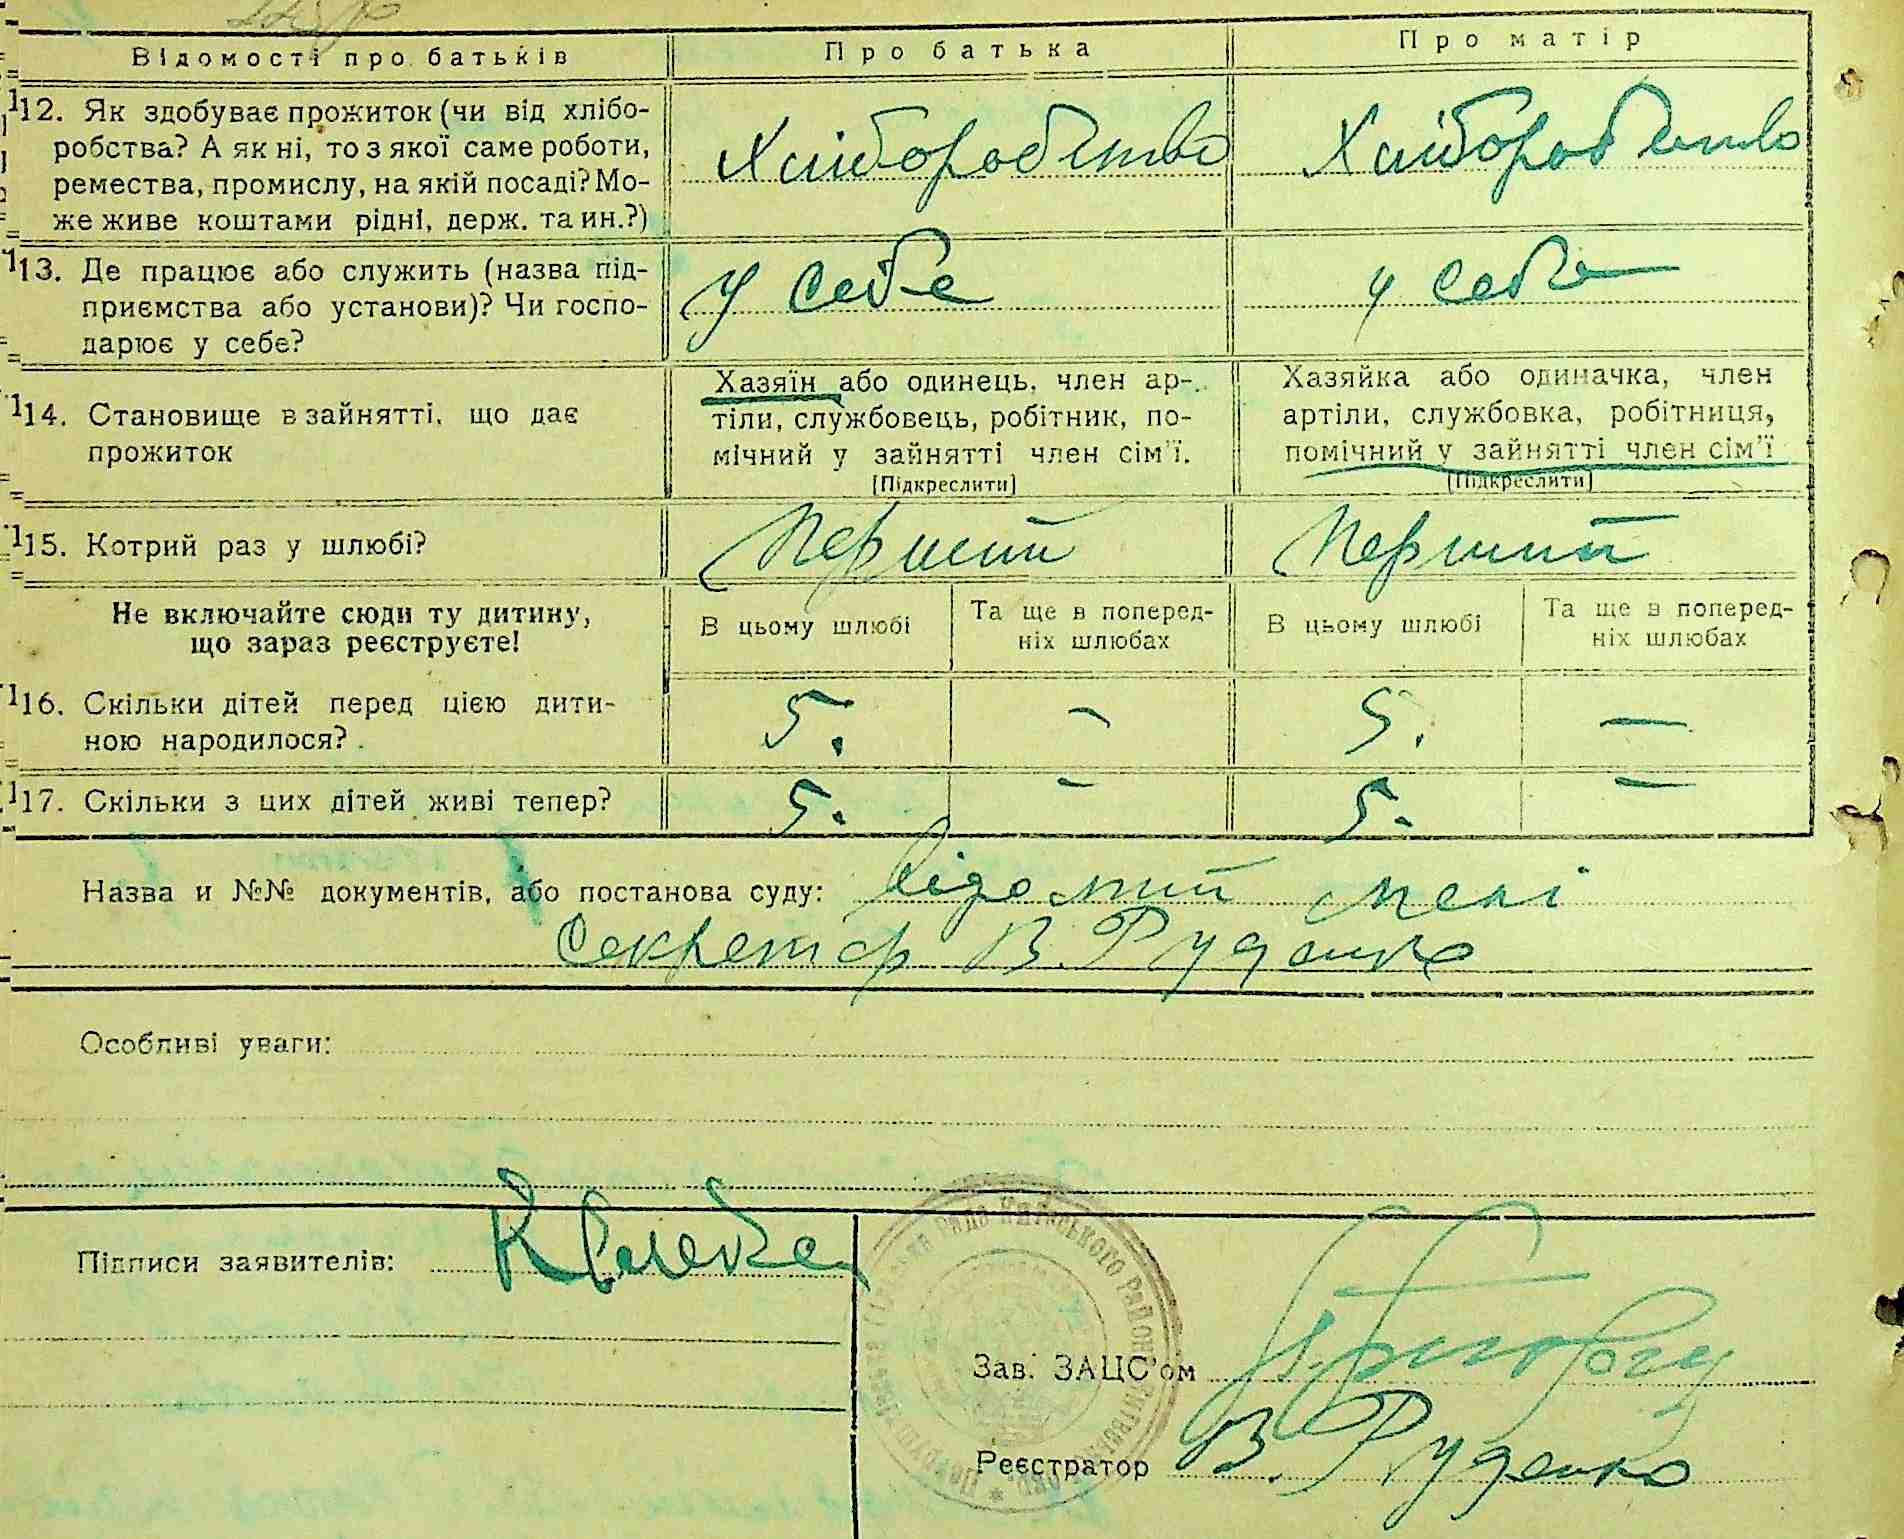 Відомості про батьків
Про батька
Про матір
12. Як здобуває прожиток (чи від хлібо-
робства? А як ні, то з якої саме роботи,
ремества, промислу, на якій посаді? Мо-
же живе коштами рідні, держ. та ин.?)
Хліборобство
Хліборобство
13. Де працює або служить (назва під-
приємства або установи)? Чи госпо-
дарює у себе?
у себе
у себе
14. Становище в зайнятті, що дає
прожиток
Хазяїн або одинець, член ар-
тіли, службовець, робітник, по-
мічний у зайнятті член сім'ї.
[Підкреслити]
Хазяйка або одиначка, член
артіли, службовка, робітниця,
помічний у зайнятті член сім'ї
[Підкреслити]
15. Котрий раз у шлюбі?
Перший
Перший
Не включайте сюди ту дитину,
що зараз реєструєте!
В цьому шлюбі
Та ще в поперед-
ніх шлюбах
В цьому шлюбі
Та ще в поперед-
ніх шлюбах
16. Скільки дітей перед цією дити-
ною народилося?
5.
-
5.
—
17. Скільки з цих дітей живі тепер?
5.
-
5.
—
Назва и №№ документів, або постанова суду: відомий мені
Секретар В. Руденко
Особливі уваги:
Підписи заявителів:
Рада
РАЙОН
Зав. ЗАЦС'ом
Реєстратор В. Руденко